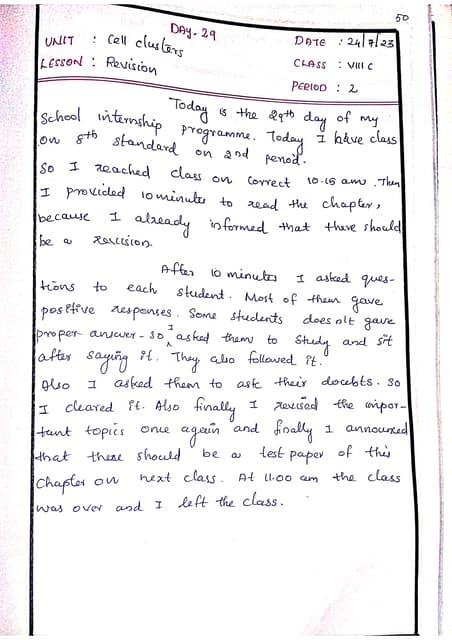 50
DAY-29
UNIT : Cell clusters
DATE : 24/7/23
LESSON : Revision
CLASS : VIII C
PERIOD : 2
Today is the 29th day of my
School internship programme. Today I have class
on 8th standard on 2nd period.
So I reached class on correct 10.15 am. Then
I provided 10 minutes to read the chapter,
because I already informed that there should
be a revision.
After 10 minutes I asked ques-
tions to each student. Most of them gave
positive responses. Some students does n't gave
proper answer. So I asked them to study and sit
after saying it. They also followed it.
Also I asked them to ask their doubts. So
I cleared it. Also finally I revised the impor-
tant topics once again and finally I announced
that there should be a test paper of this
chapter on next class. At 11.00 am the class
was over and I left the class.